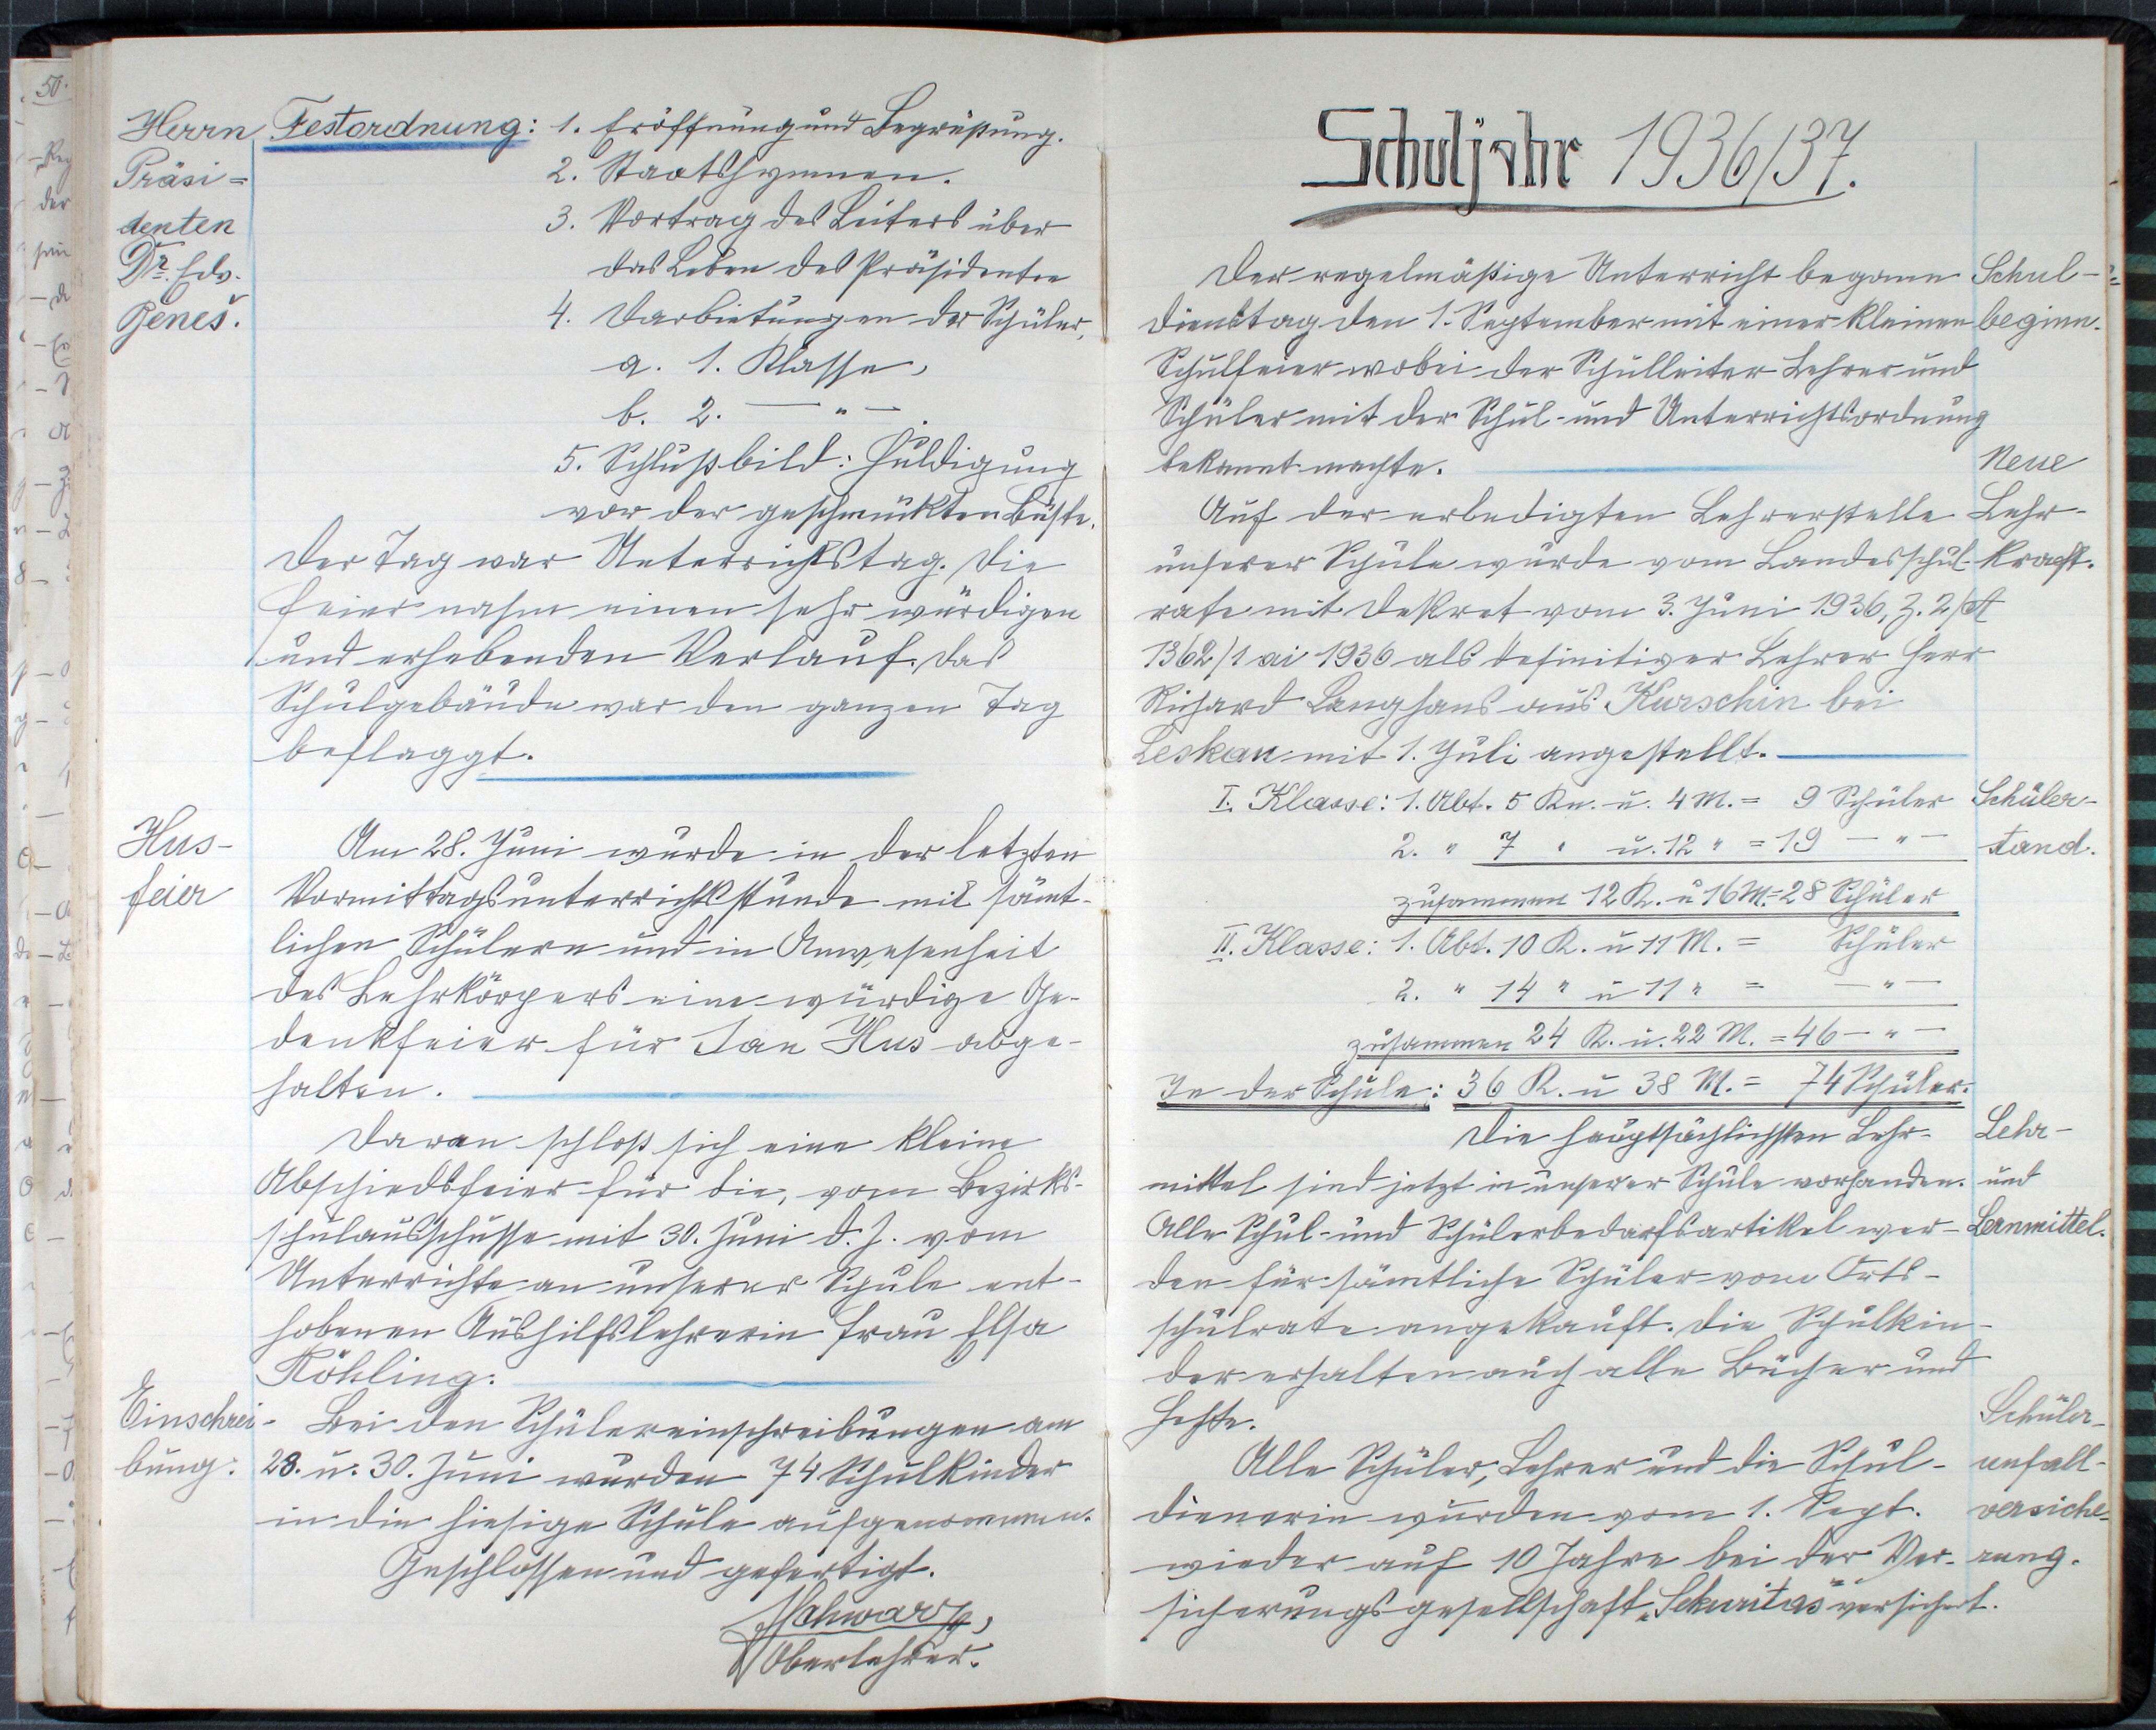 Herrn
Präsi=
denten
Dr. Edv.
Beneš.
Festordnung: 1. Eröffnung und Begrüßung.
2. Staatshymnen.
3. Vortrag des Leiters über
das Leben des Präsidenten
4. Darbietungen der Schüler,
a. 1. Klasse,
b. 2. — " —.
5. Schlußbild: Huldigung
vor der geschmückten Büste.
Der Tag war Unterrichtstag. Die
Feier nahm einen sehr würdigen
und erhebenden Verlauf. Das
Schulgebäude war den ganzen Tag
beflaggt.
Hus-
feier
Am 28. Juni wurde in der letzten
Vormittagsunterrichtsstunde mit sämt-
lichen Schülern und in Anwesenheit
des Lehrkörpers eine würdige Ge-
denkfeier für Jan Hus abge-
halten.
Daran schloß sich eine kleine
Abschiedsfeier für die, vom Bezirks-
schulausschusse mit 30. Juni d. J. vom
Unterrichte an unserer Schule ent-
hobenen Aushilfslehrerin Frau Elsa
Köhling.
Einschrei-
bung.
Bei den Schülereinschreibungen am
28. u. 30. Juni wurden 74 Schulkinder
in die hiesige Schule aufgenommen.
Geschlossen und gefertigt.
Schwarz,
Oberlehrer.
Schuljahr 1936/37.
Der regelmäßige Unterricht begann
Dienstag den 1. September mit einer kleinen
Schulfeier wobei der Schulleiter Lehrer und
Schüler mit der Schul- und Unterrichtsordnung
bekannt machte.
Schul-
beginn.
Auf der erledigten Lehrerstelle
unserer Schule wurde vom Landesschul-
rate mit Dekret vom 3. Juni 1936, Z. 2/A
1362/1 ai 1936 als definitiver Lehrer Herr
Richard Langhans aus Kurschin bei
Leskau mit 1. Juli angestellt.
Neue
Lehr-
kraft.
I. Klasse: 1. Abt. 5 Kn. u. 4 M. = 9 Schüler
2. " 7 " u. 12 " = 19 — " —
zusammen 12 K. u 16 M. = 28 Schüler
II. Klasse: 1. Abt. 10 K. u 11 M. = Schüler
2. " 14 " u 11 " = — " —
zusammen 24 K. u. 22 M. = 46 — " —
In der Schule: 36 K. u 38 M. = 74 Schüler.
Schüler-
stand.
Die hauptsächlichsten Lehr-
mittel sind jetzt in unserer Schule vorhanden.
Alle Schul- und Schülerbedarfsartikel wer-
den für sämtliche Schüler vom Orts-
schulrate angekauft. Die Schulkin-
der erhalten auch alle Bücher und
Hefte.
Lehr-
und
Lernmittel.
Alle Schüler, Lehrer und die Schul-
dienerin wurden vom 1. Sept.
wieder auf 10 Jahre bei der Ver-
sicherungsgesellschaft „Sekuritas" versichert.
Schüler-
unfall-
versiche-
rung.